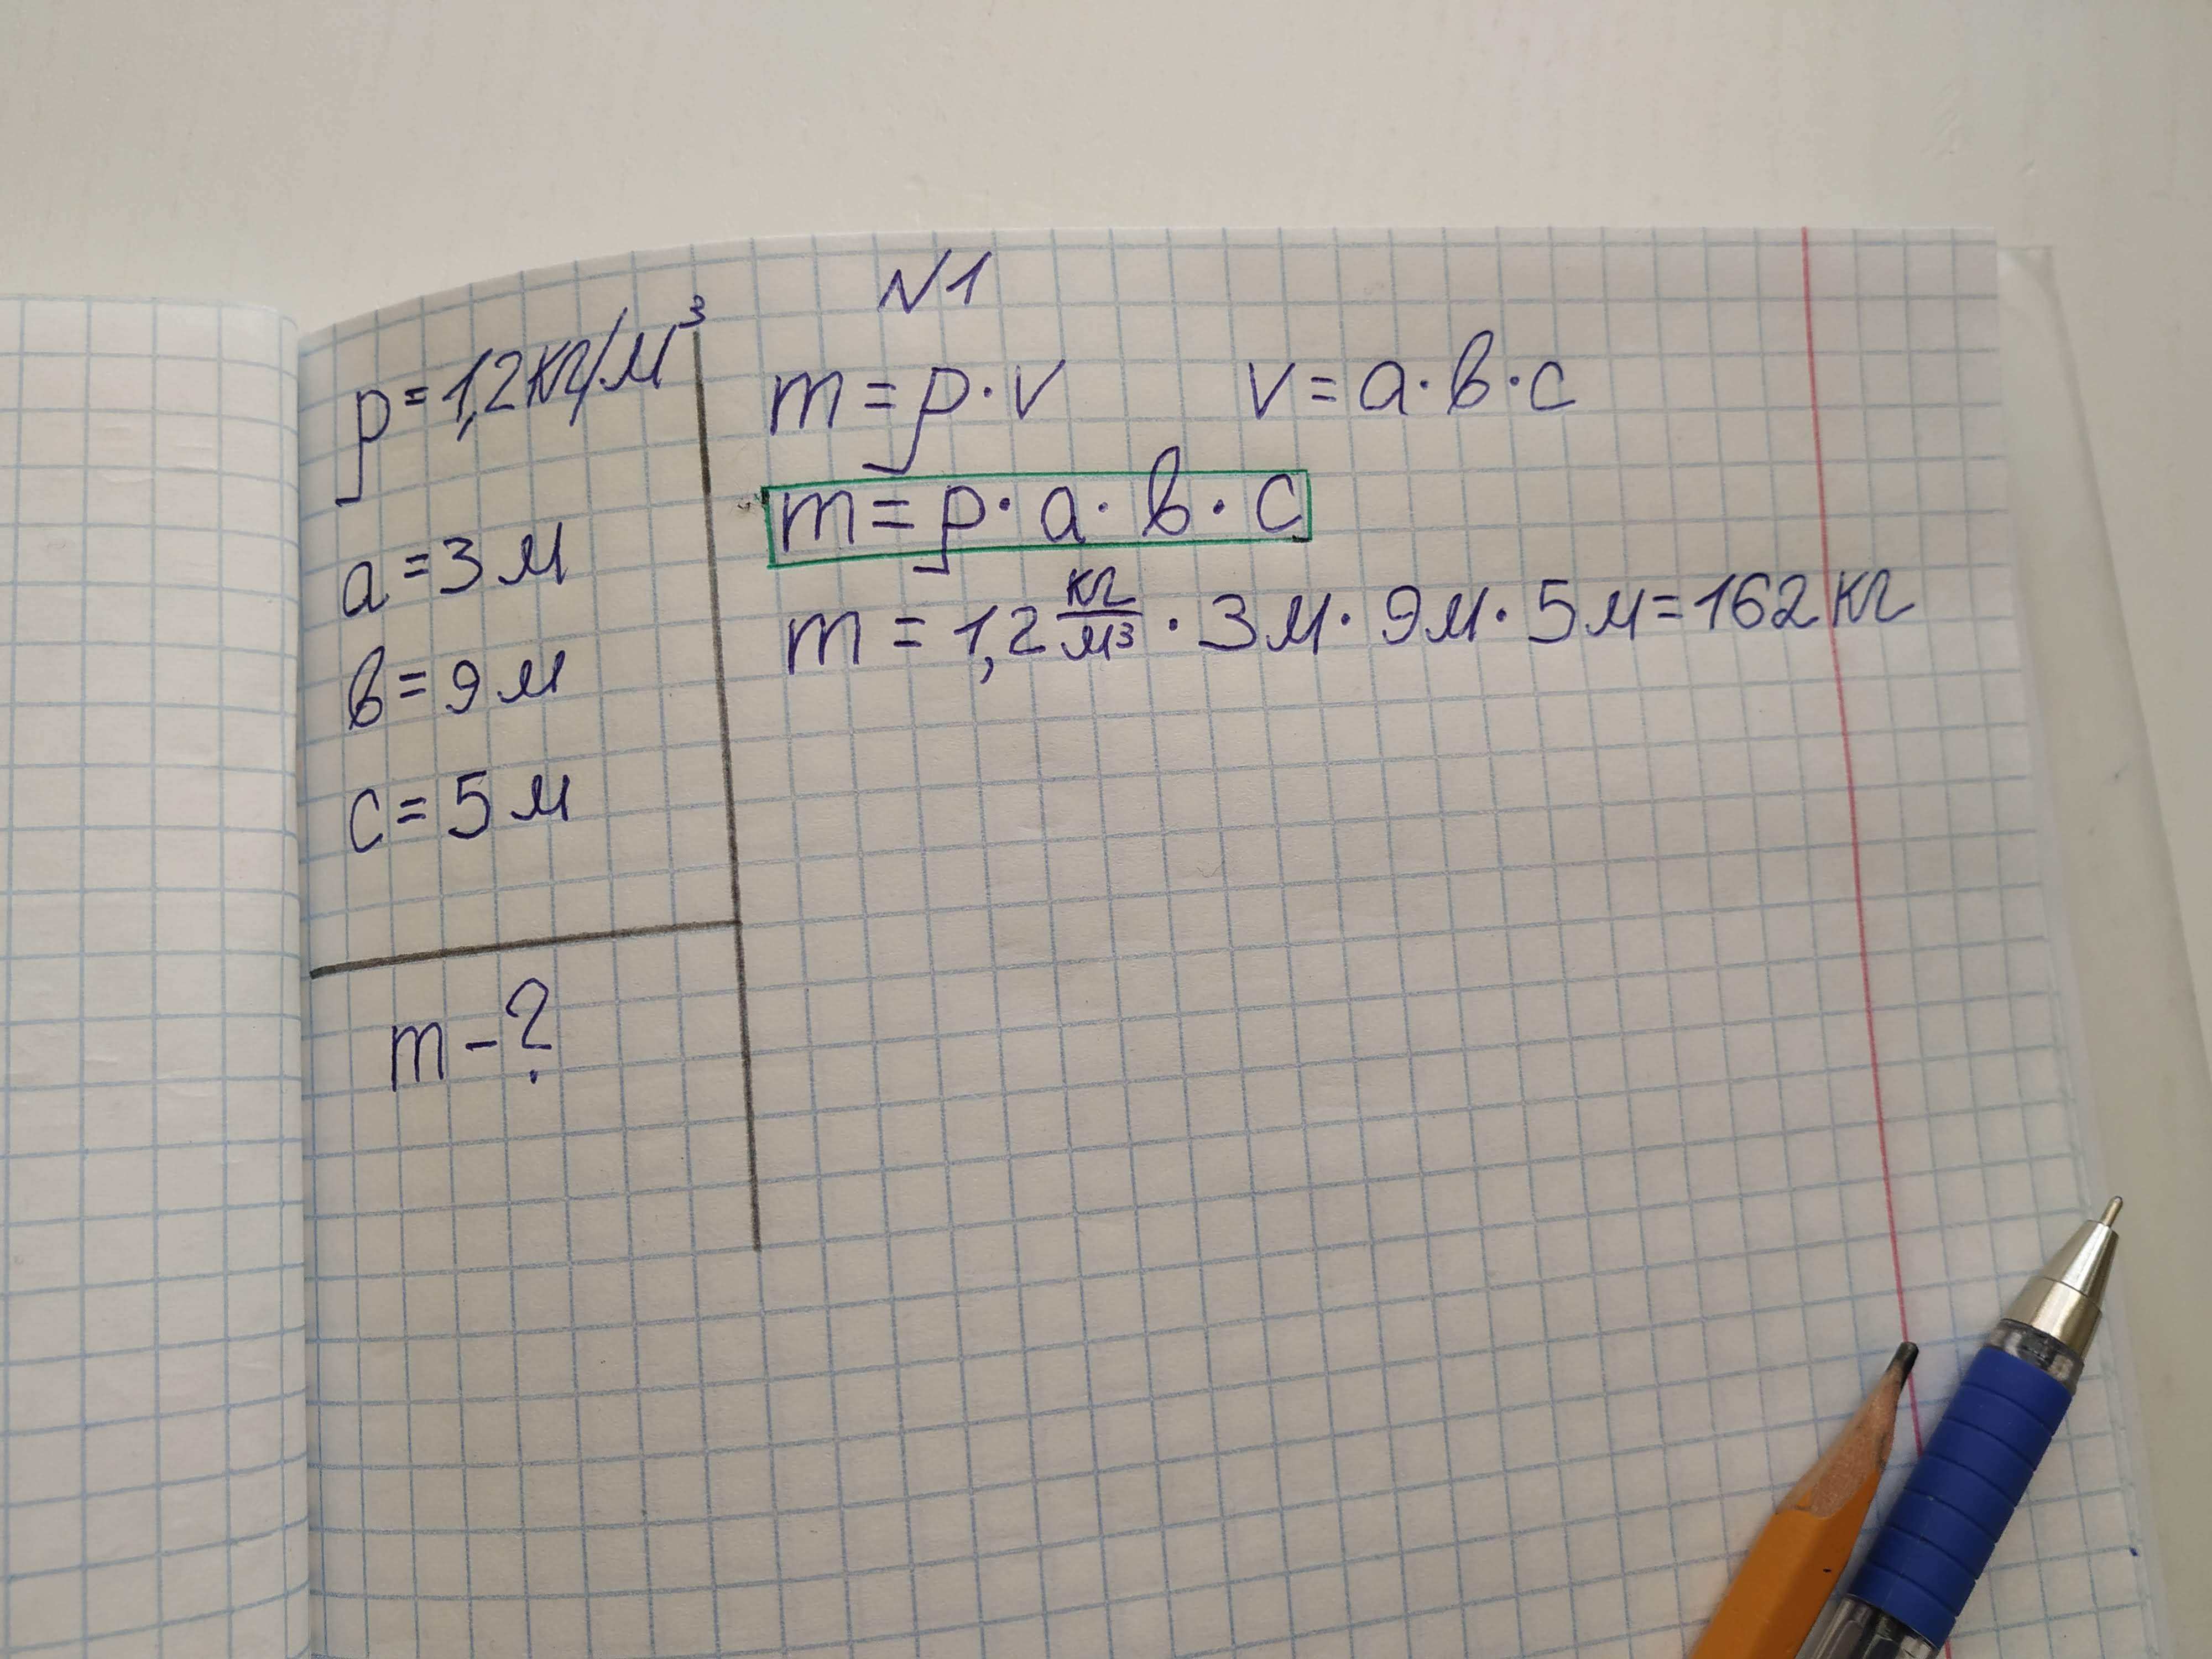 N1
ρ = 1,2 кг/м³
a = 3 м
в = 9 м
c = 5 м
m - ?
m = ρ · v v = a · в · c
m = ρ · a · в · c
m = 1,2 кг/м³ · 3 м · 9 м · 5 м = 162 кг